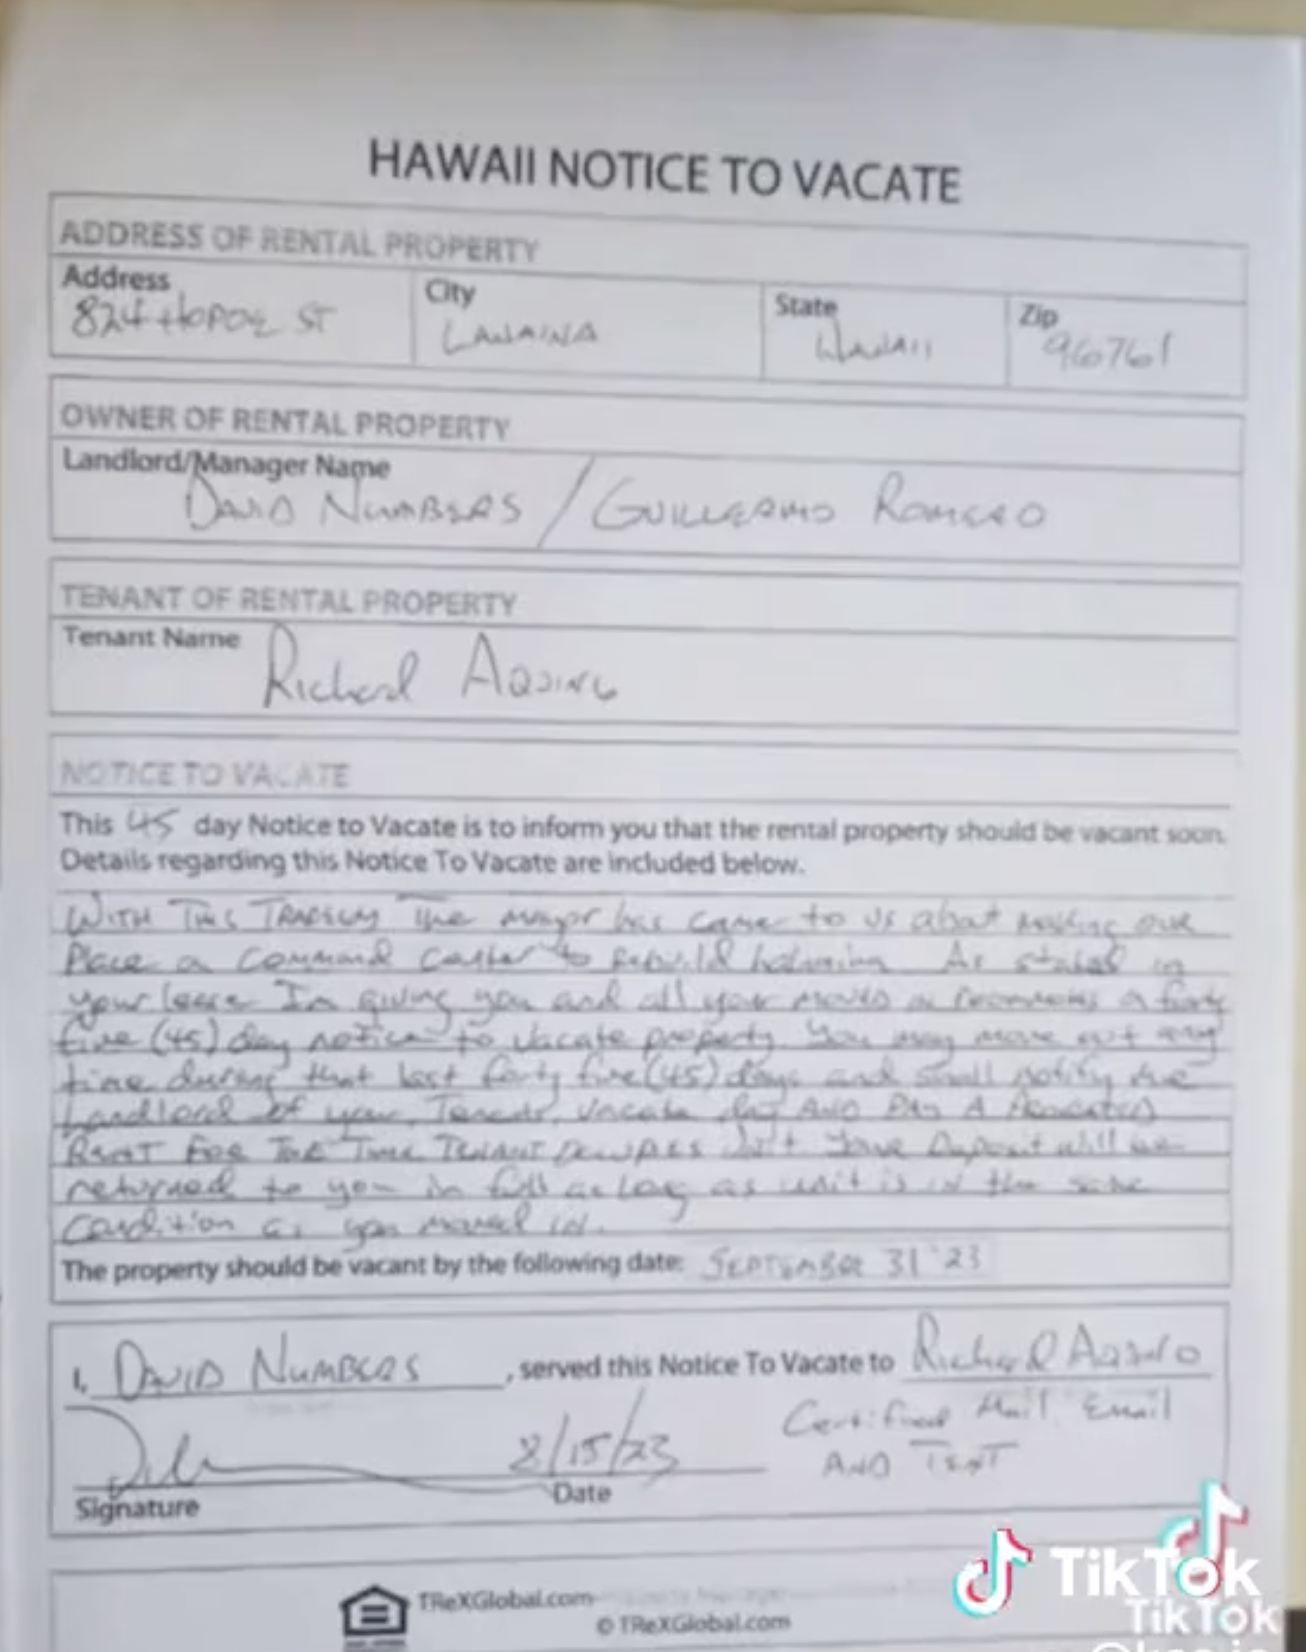 HAWAII NOTICE TO VACATE
ADDRESS OF RENTAL PROPERTY
Address
824 HOPOE ST
City
LAHAINA
State
HAWAII
Zip
96761
OWNER OF RENTAL PROPERTY
Landlord/Manager Name
DAVID NUMBERS / GUILLERMO ROMERO
TENANT OF RENTAL PROPERTY
Tenant Name Richard AQUINO
NOTICE TO VACATE
This 45 day Notice to Vacate is to inform you that the rental property should be vacant soon.
Details regarding this Notice To Vacate are included below.
WITH THIS TRAGEDY The mayor has came to us about making our
Place a Command Center to Rebuild Lahaina. As stated in
your lease Im giving you and all your a forty
five (45) day notice to vacate property. You may move out any
time during that last forty five (45) days and shall notify the
Landlord of your Tenants vacate day AND PAY A PRORATED
RENT FOR THE TIME TENANT OCCUPIES Unit. Your Deposit will be
returned to you in full as long as unit is in the same
Condition as you moved in.
The property should be vacant by the following date: SEPTEMBER 31 '23
I, DAVID NUMBERS, served this Notice To Vacate to Richard AQUINO
8/15/23
Certified Mail Email
AND TEXT
Signature
Date
TReXGlobal.com
© TReXGlobal.com
TikTok
TikTok